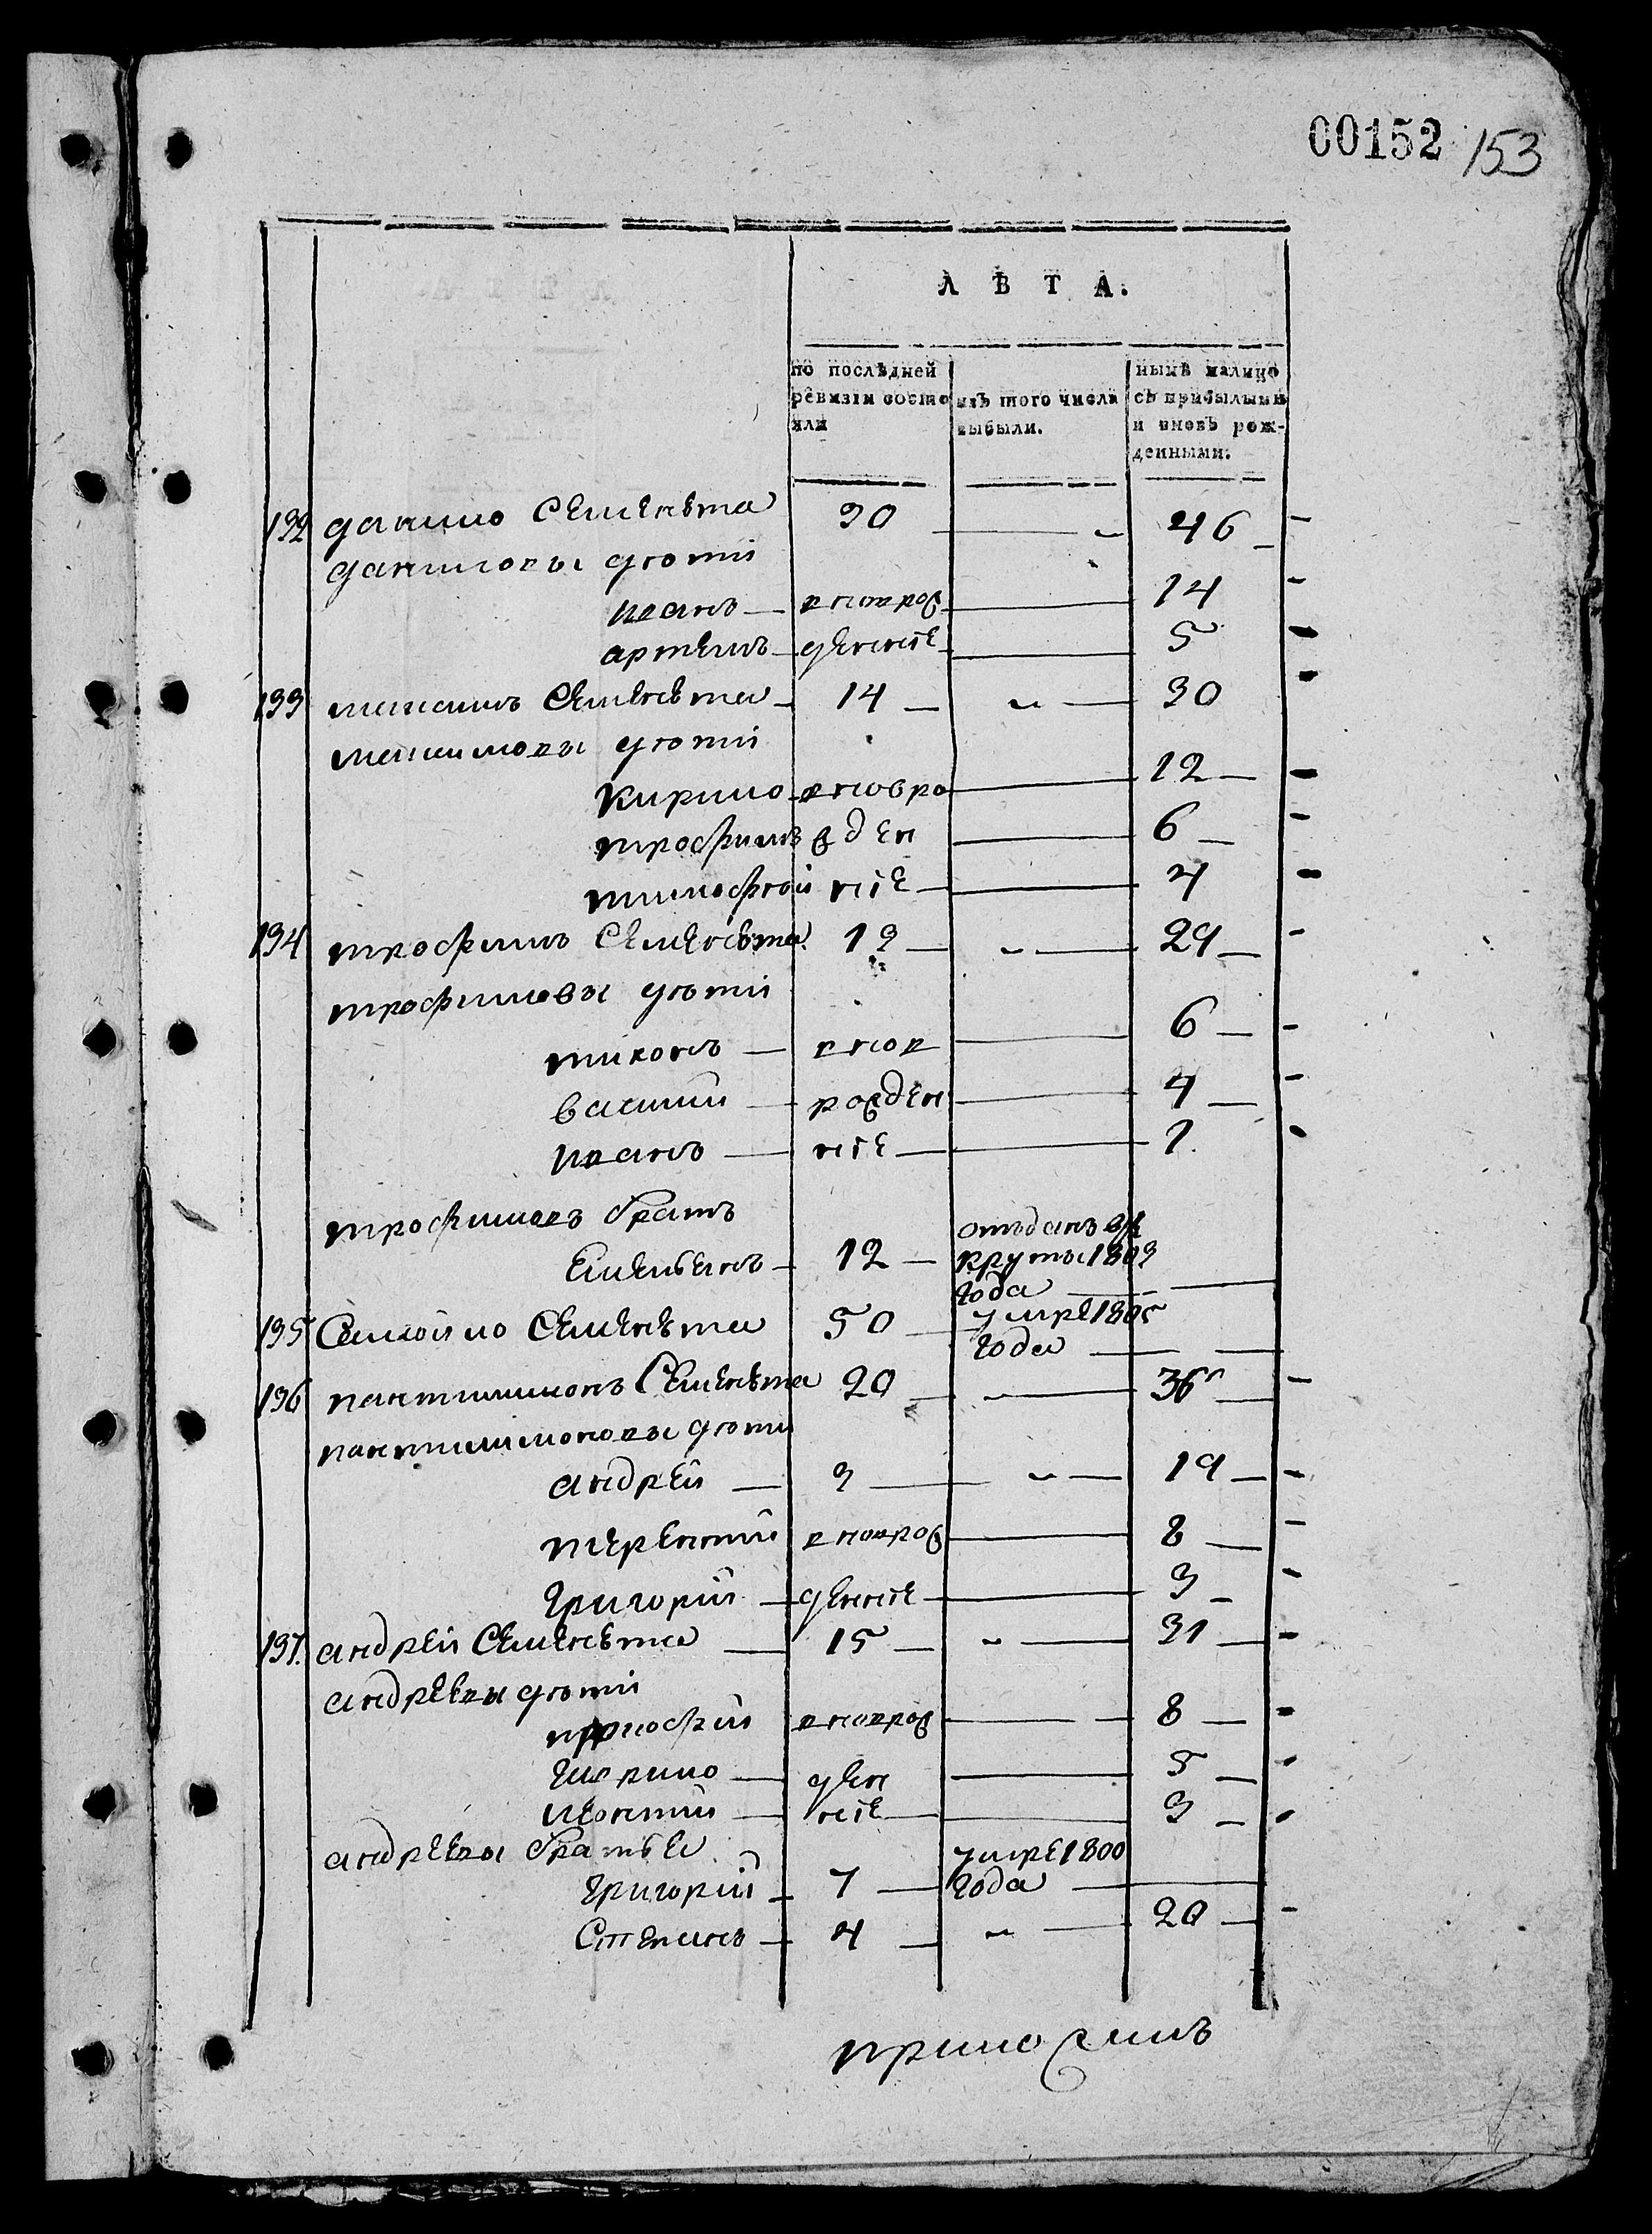 00152 153
ЛѢТА.
по послѣдней ревизіи состояли
изъ того числа выбыли.
нынѣ налицо съ прибылыми и вновь рожденными.
132 данило Семенѣта 30 46
даниловы дѣти
иванъ вновьрож 14
артемъ деніе 5
133 максимъ Семенѣта 14 30
максимовы дѣти
Кирило вновьро 12
трофимъ жден 6
тимофѣй ніе 4
134 трофимъ Семенѣта 13 29
трофимовы дѣти
тихонъ внов 6
василий рожден 4
иванъ ніе 1
трофимовъ братъ
Емельянъ 12 отъданъ врекруты 1803 года
135 Самойло Семенѣта 50 умре 1805 года
136 пантилимонъ Семенѣта 20 36
пантилимоновы дѣти
андрей 3 19
терентий вновьрож 8
Григорий деніе 3
137. андрей Семенѣта 15 31
андреевы дѣти
вновьрож 8
Гаврило ден 5
леонтий ніе 3
андреевы братья
Григорий 7 умре 1800 года
Степанъ 4 20